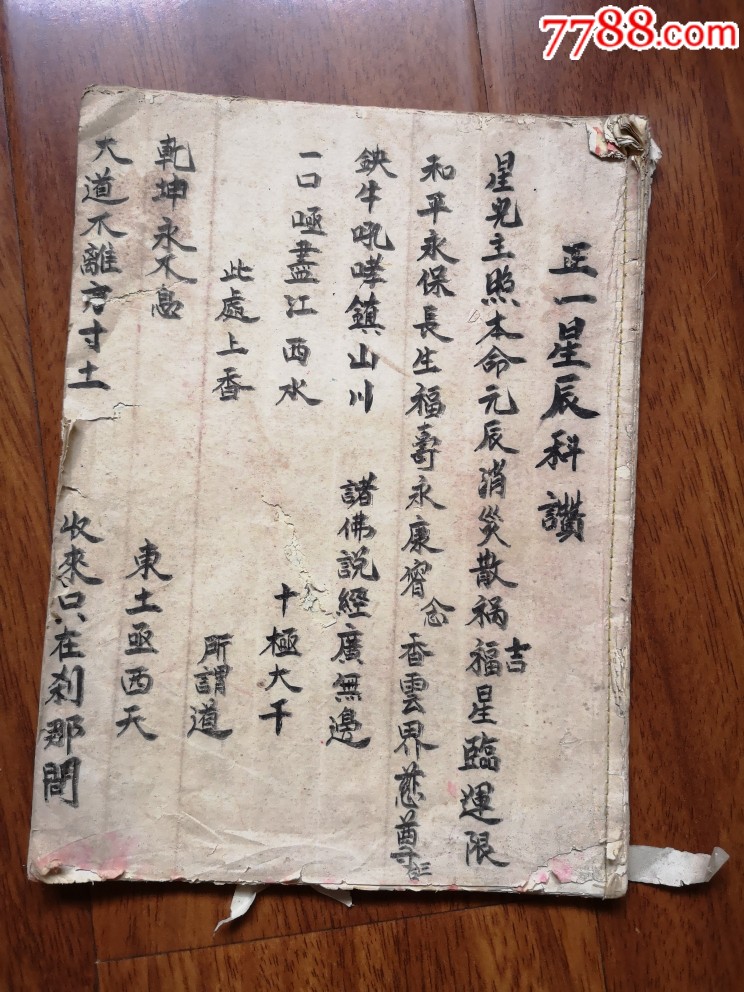 7788.com
正一星辰科讚
星光主照本命元辰消災散祸福星臨運限
吉
和平永保長生福壽永康寧念香雲界慈尊
鉄牛吼哮鎮山川 諸佛説經廣無邊
一口㗔盡江西水 十極大千
此處上香 所謂道
乾坤永不息 東土亟西天
大道不離方寸土 收來只在刹那間